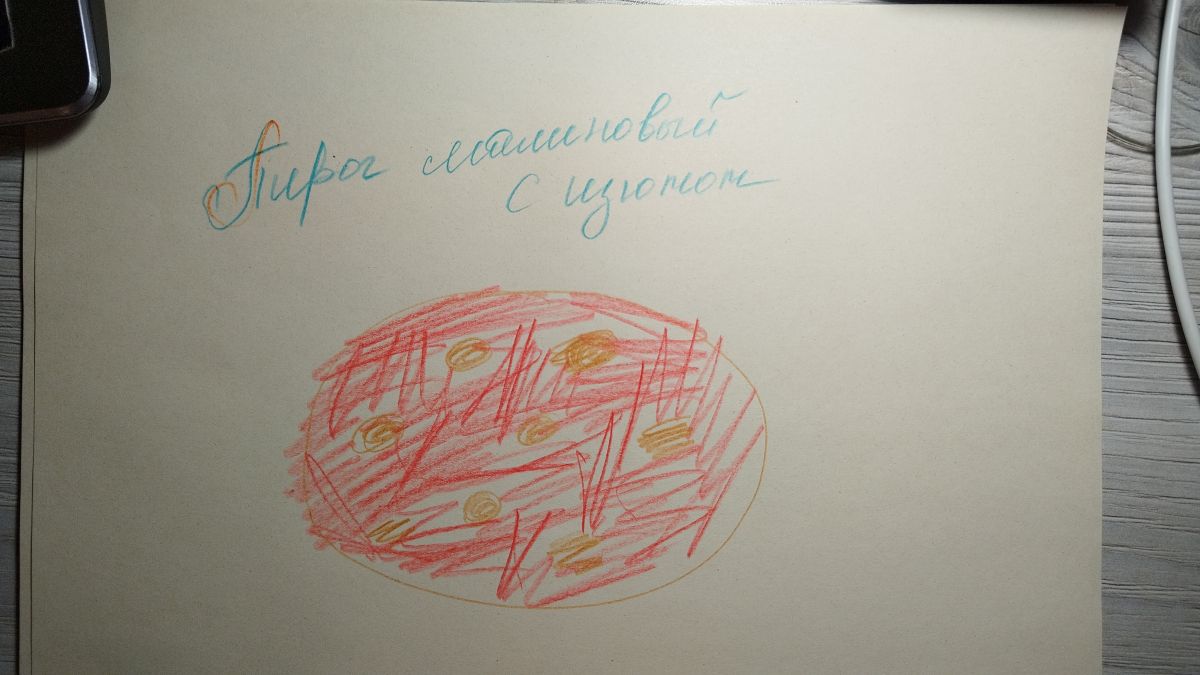 Пирог малиновый
с изюмом